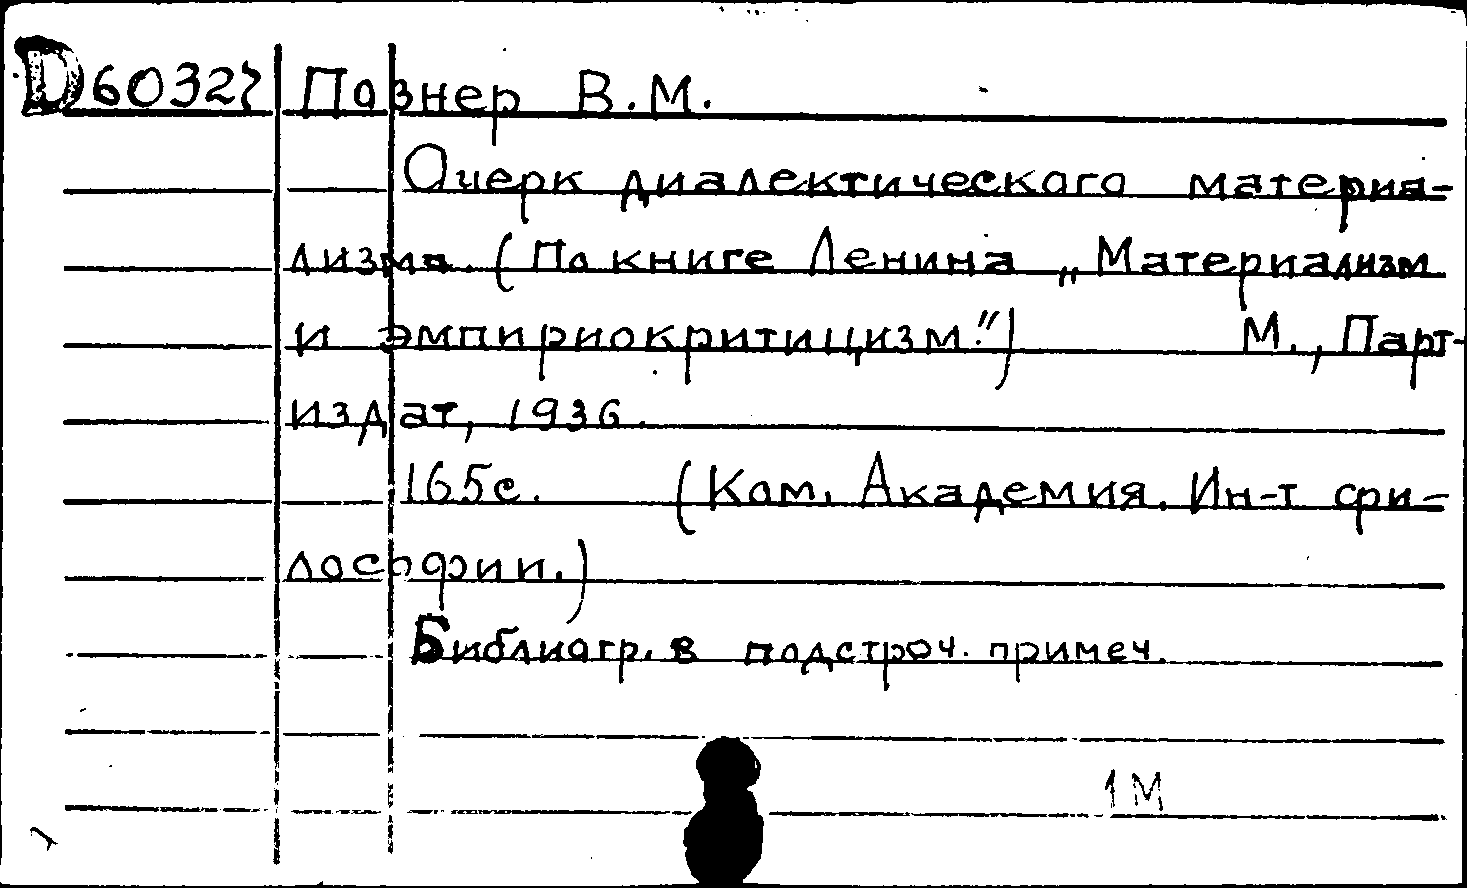 D60327 Познер В.М.
Очерк диалектического материа-
лизма. (По книге Ленина „Материализм
и эмпириокритицизм.") М., Парт-
издат, 1936.
165с. (Ком. Академия. Ин-т фи-
лософии.)
Библиогр. в подстроч. примеч.
1М